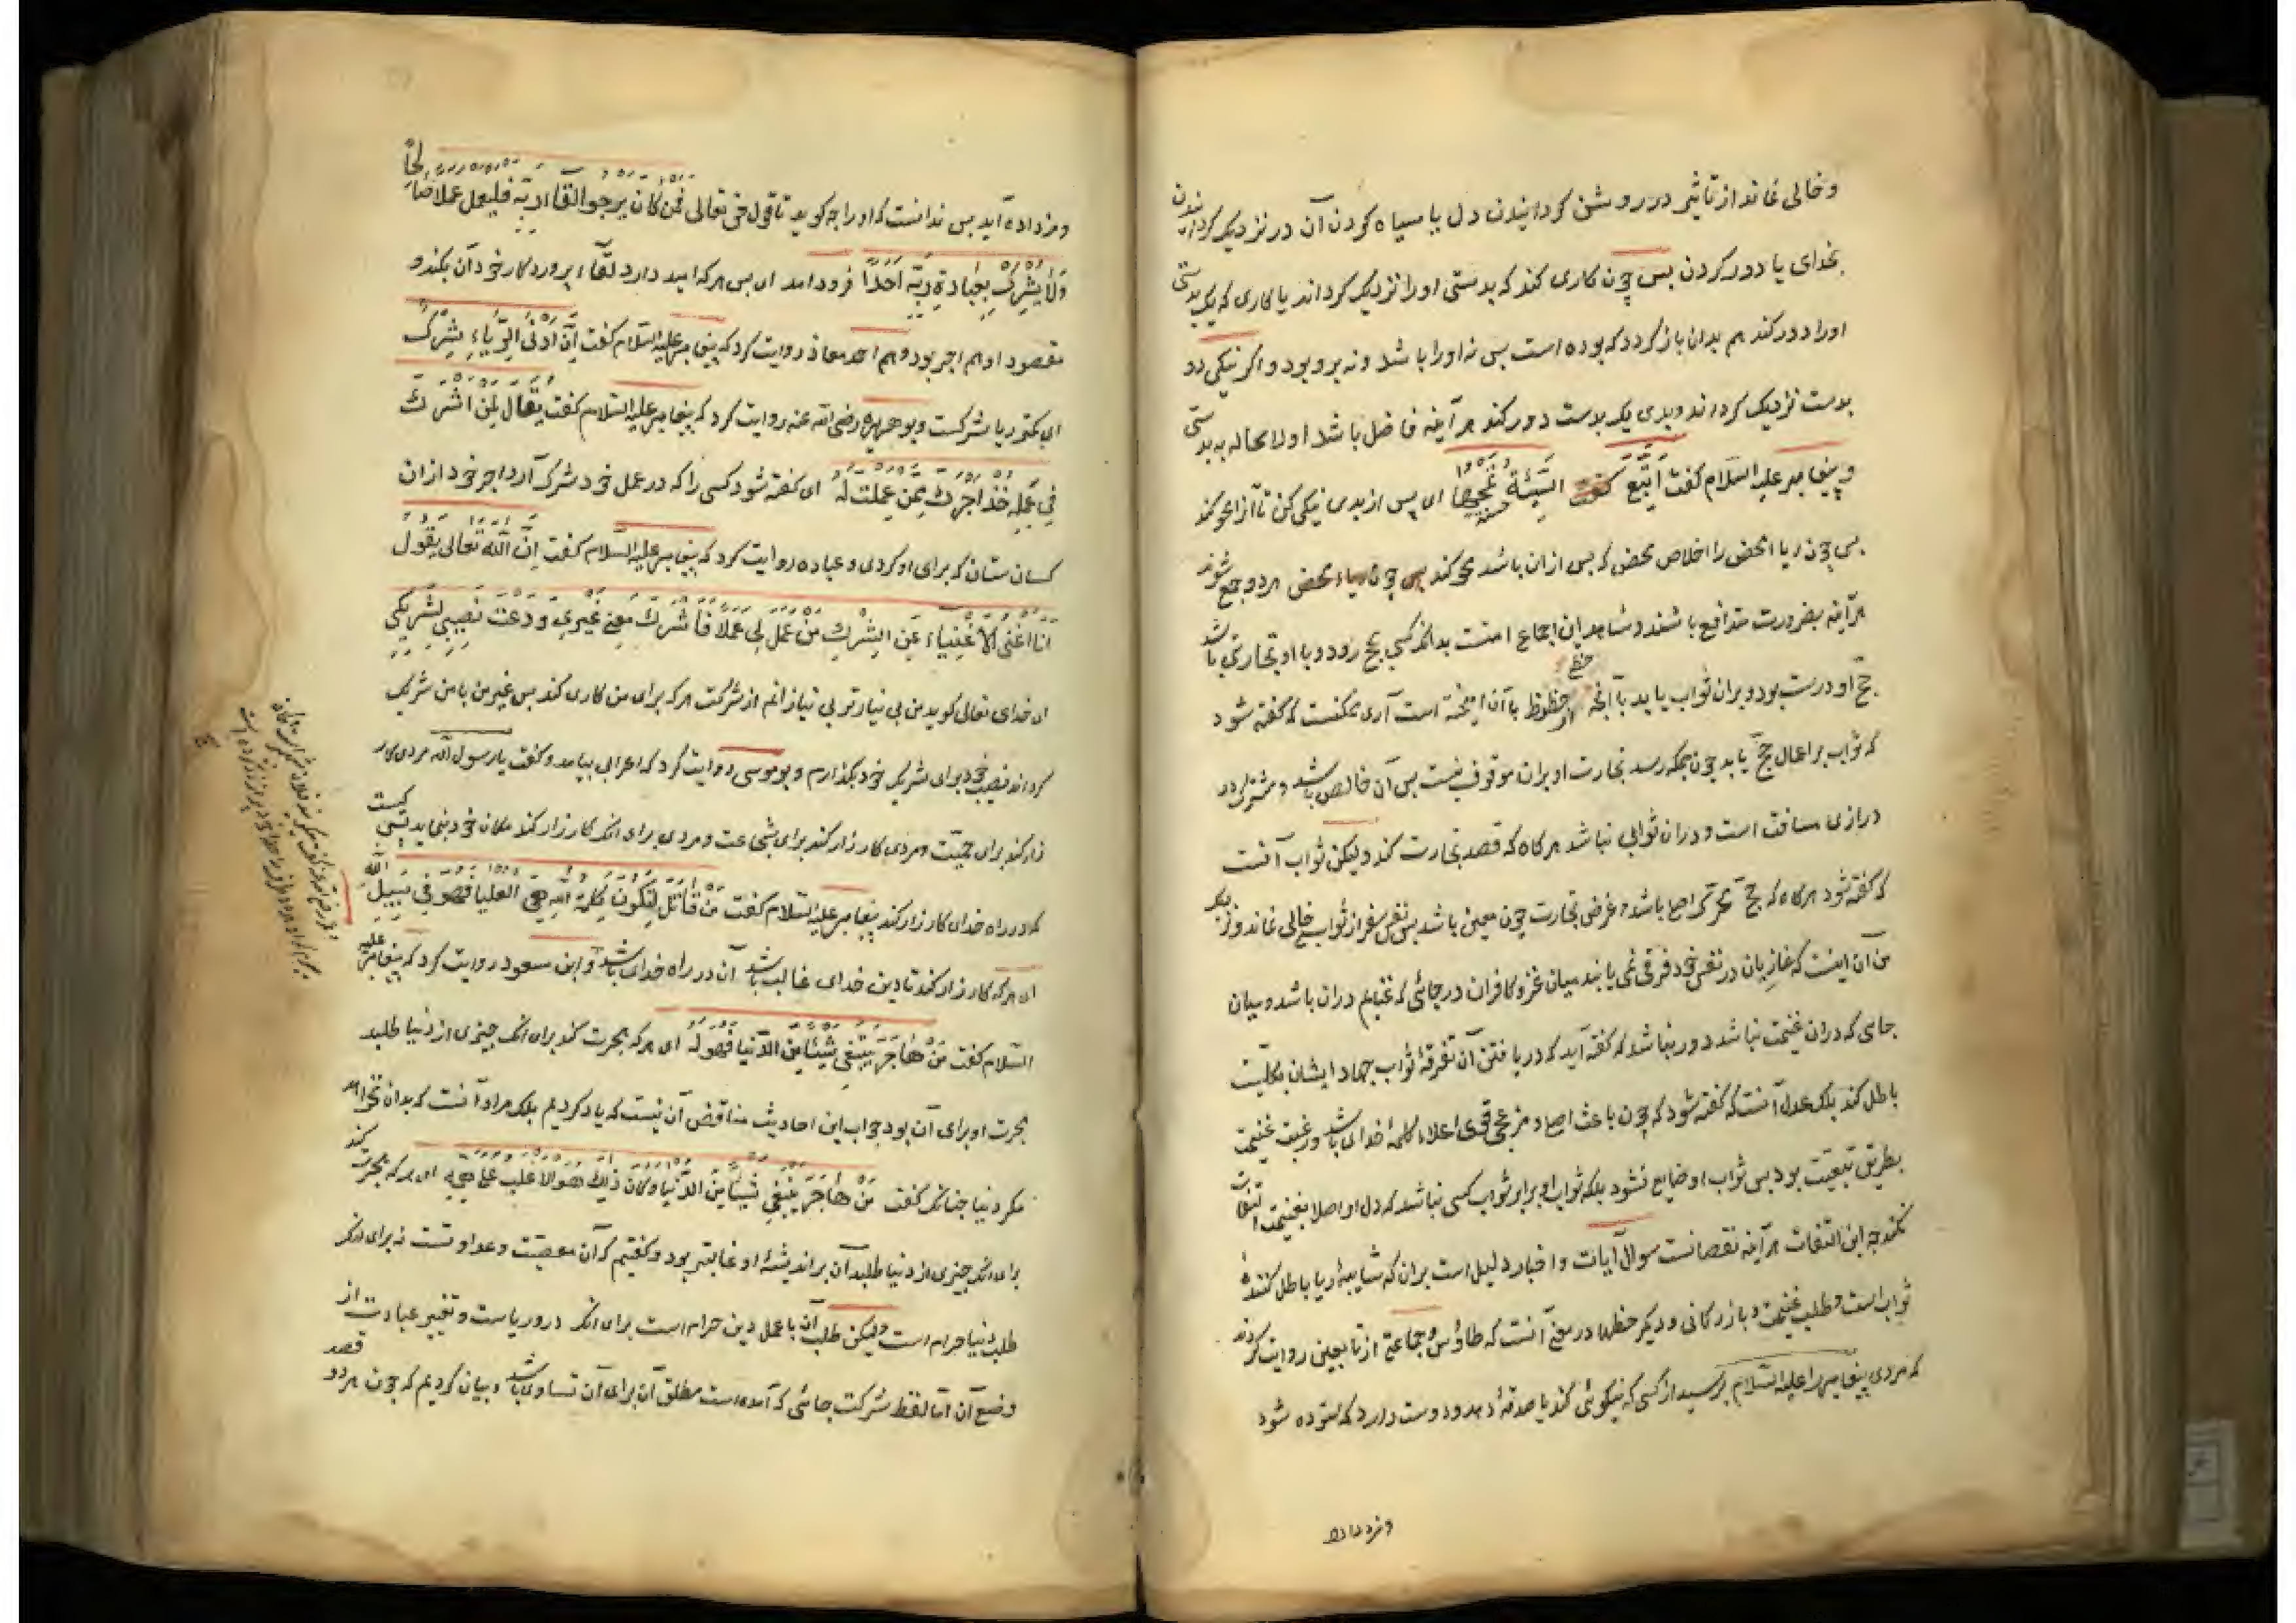 و خالی نماند از تاثیر در روشن کردانیدن دل یا سیاه کردن آن در نزدیک کردانیدن
بخدای یا دور کردن پس چون کاری کند که بدستی او را نزدیک کرداند یا کاری که یک بدستی
او را دور کند هم بدان باز کردد که بوده است پس نه او را باشد و نه برو بود و اکر نیکی دو
بدست نزدیک کرداند و بدی یک بدست دور کند هر آینه فاضل باشد او لا محاله به بدستی
و پیغامبر علیه السلام کفت اَتبِع السَّیِّئَة حسنة تمحها ای پس از بدی نیکی کن تا آنرا محو کند
پس چون ریاء محض را اخلاص محض که پس از آن باشد محو کند پس چون هر دو جمع شوند
هر آینه بضرورت متدافع باشند و شاهد این اجماع امتست بدانکه کسی بحج رود و با او تجارتی باشد
حج او درست بود و بران ثواب یابد با آنچه حظی از حظوظ با آن آمیخته است آری ممکنست که کفته شود
که ثواب بر اعمال حج یابد چون بمکه رسد تجارت او بران موقوف نیست پس آن خالص باشد و مشترک در
درازی مسافت است و دران ثوابی نباشد هر کاه که قصد تجارت کند ولیکن ثواب آنست
که کفته شود هر کاه که حج محرک اصلی باشد و غرض تجارت چون معین باشد پس نفس سفر از ثواب خالی نماند و نزدیک
من آن اینست که غازیان در نفس خود فرقی نمی یابند میان غزو کافران در جائی که غنایم دران باشد و میان
جایی که دران غنیمت نباشد و دور نباشد که کفته آید که دریافتن آن تفرقه ثواب جهاد ایشان بکلیت
باطل کند بلکه عدل آنست که کفته شود که چون باعث اصلی و مزعج قوی اعلاء کلمه خدای باشد و رغبت غنیمت
بطریق تبعیت بود پس ثواب او ضایع نشود بلکه ثواب او برابر ثواب کسی نباشد که دل او اصلا بغنیمت التفات
نکند چه این التفات هر آینه نقصانست سوال آیات و اخبار دلیل است بران که شایبه ریا باطل کننده
ثواب است و طلب غنیمت و بازرکانی و دیکر حظها در معنی آنست که طاوس و جماعتی از تابعین روایت کردند
که مردی پیغامبر را علیه السلام پرسید از کسی که نیکوئی کند یا صدقه دهد و دوست دارد که ستوده شود
و مزد داده
و مزد داده آید پس ندانست که او را چه کوید تا قول حق تعالی فَمَن کَانَ یَرجوا لِقَاءَ رَبِّه فلیعمل عملا صالحا
وَلَا یُشرِک بِعِبَادَةِ رَبِّه اَحَدًا فرود آمد ای پس هر که امید دارد لقاء پروردکار خود آن بکند و
مقصود او هم اجر بود و هم احمد معاذ روایت کرد که پیغامبر علیه السلام کفت اِنَّ اَدنَی الرِّیَاءِ شِرک
ای کمتر ریا شرکست و بو هریره رضی الله عنه روایت کرد که پیغامبر علیه السلام کفت یُقَالُ لِمَن اَشرَکَ
فِی عَمَلِه خُذ اَجرَکَ مِمَّن عَمِلتَ لَهُ ای کفته شود کسی را که در عمل خود شرک آرد اجر خود از آن
کسان ستان که برای او کردی و عباده روایت کرد که پیغامبر علیه السلام کفت اِنَّ اللهَ تَعَالی یَقُولُ
اَنَا اَغنَی الاَغنِیَاءِ عَنِ الشِّرکِ مَن عَمِلَ لِی عَمَلًا فَاَشرَکَ مَعِی غَیرِی وَدَعتُ نَصِیبِی لِشَرِیکِی
ای خدای تعالی کوید من بی نیازتر بی نیازانم از شرکت هر که برای من کاری کند پس غیر من با من شریک
کرداند نصیب خود برای شریک خود بکذارم و بو موسی روایت کرد که اعرابی بیامد و کفت یا رسول الله مردی کار
زار کند برای حمیت و مردی کارزار کند برای شجاعت و مردی برای آنکه کارزار کند مکان خود بنماید پس کیست
که در راه خدای کارزار کند پیغامبر علیه السلام کفت مَن قَاتَلَ لِتَکُونَ کَلِمَةُ اللهِ هِیَ العُلیَا فَهُوَ فِی سَبِیلِ الله
ای هر که کارزار کند تا دین خدای غالب باشد آن در راه خدای باشد و ابن مسعود روایت کرد که پیغامبر علیه
السلام کفت مَن هَاجَرَ یَبتَغِی شَیئًا مِنَ الدُّنیَا فَهُوَ لَهُ ای هر که هجرت کند برای آنکه چیزی از دنیا طلبد
هجرت او برای آن بود جواب این احادیث مناقض آن نیست که یاد کردیم بلکه مراد آنست که بدان نخواهد
مکر دنیا چنانکه کفت مَن هَاجَرَ یَبتَغِی شَیئًا مِنَ الدُّنیَا وکان ذلک هو الاغلب علی همه ای هر که هجرت کند
برای آنکه چیزی از دنیا طلبد آن بر اندیشه او غالبتر بود و کفتیم که آن معصیت و عداوتست نه برای آنکه
طلب دنیا حرام است ولیکن طلب آن با عمل دین حرام است برای آنکه درو ریاست و تغییر عبادت از
وضع آن اما لفظ شرکت جائی که آمده است مطلق آن برای آن تساوی باشد و بیان کردیم که چون هر دو قصد